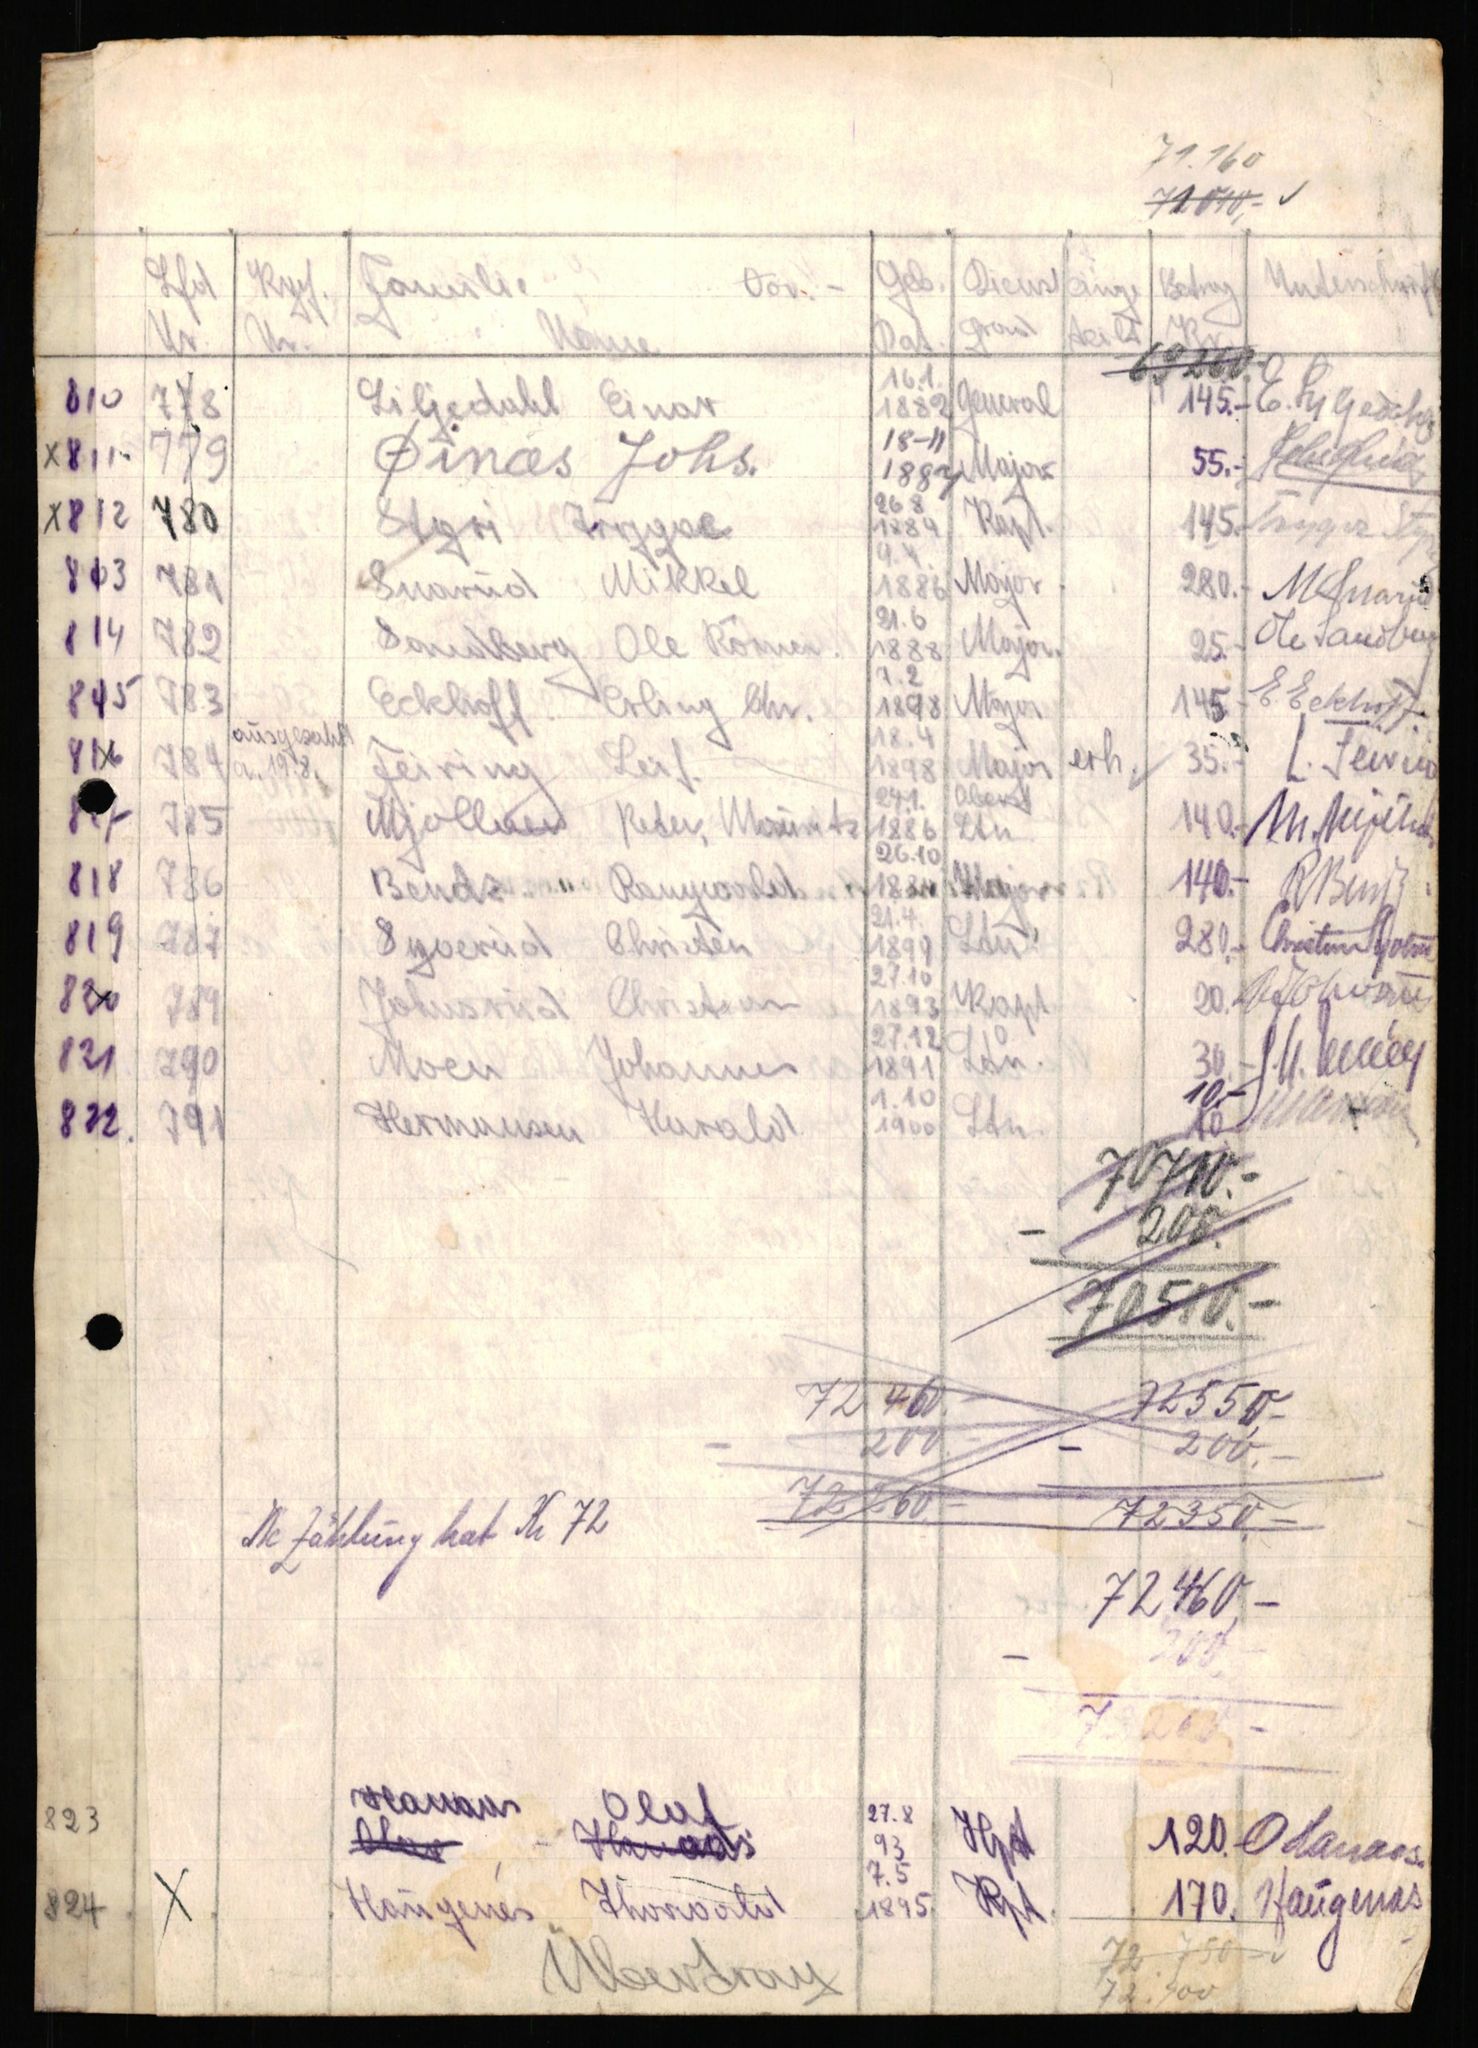 71.160
72010,- ✓
Lfd Kgf. Familie Vor.- Geb. Dienst Betrag Unterschrift
Nr. Nr. Name Dat. grad Kr
69260
810 778 Liljedahl Einar 16.1. 1882 General 145.-
x 811 779 Øinæs Johs. 18-11 1887 Major 55.-
x 812 780 Stgri Trygve 26.8 1884 Kapt. 145.- Trygve
813 781 Snarud Mikkel 9.4. 1886 Major. 280.- M Snarud
814 782 Sandberg Ole Römer. 21.6 1888 Major. 25.- Ole Sandberg
815 783 Eckhoff Erling Chr. 7.2 1898 Major 145 E Eckhoff
816 784 ausgezahlt a. 19.8. Feiring Leif. 18.4 1898 Major erh. 35.- L. Feiring
817 785 Mjöllner Peter, Mauritz 24.1. 1886 Oberst Ltn 140.-
818 786 Bendz Rangvald 26.10 1884 Major 140.- R Bendz
819 787 Syverud Christen 21.4. 1899 Ltn. 280.- Christen
820 789 Johnsrud Christian 27.10 1893 Kapt 20.
821 790 Moen Johannes 27.12 1891 Ltn. 30.-
822. 791 Hermansen Harald 1.10 1900 Ltn. 10.- 10
70710.-
- 200.
70510.-
72 460.- 72550,-
- 200.- - 200.-
72 260.- 72350,-
Zählung hat Kr 72
72460,-
- 200,-
72260.-
823 Hanaas Olaf 27.8 93 Hpt 120.- O Hanaas.
824 X Haugenes Thorvald 7.5 1895. Kpt. 170. Haugenes
72.750 ✓
Übertrag 72.900